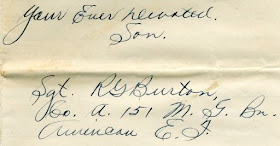 Your Ever devoted.
Son.
Sgt. RG Burton,
Co. A. 151 M. G. Bn.
American E. F.